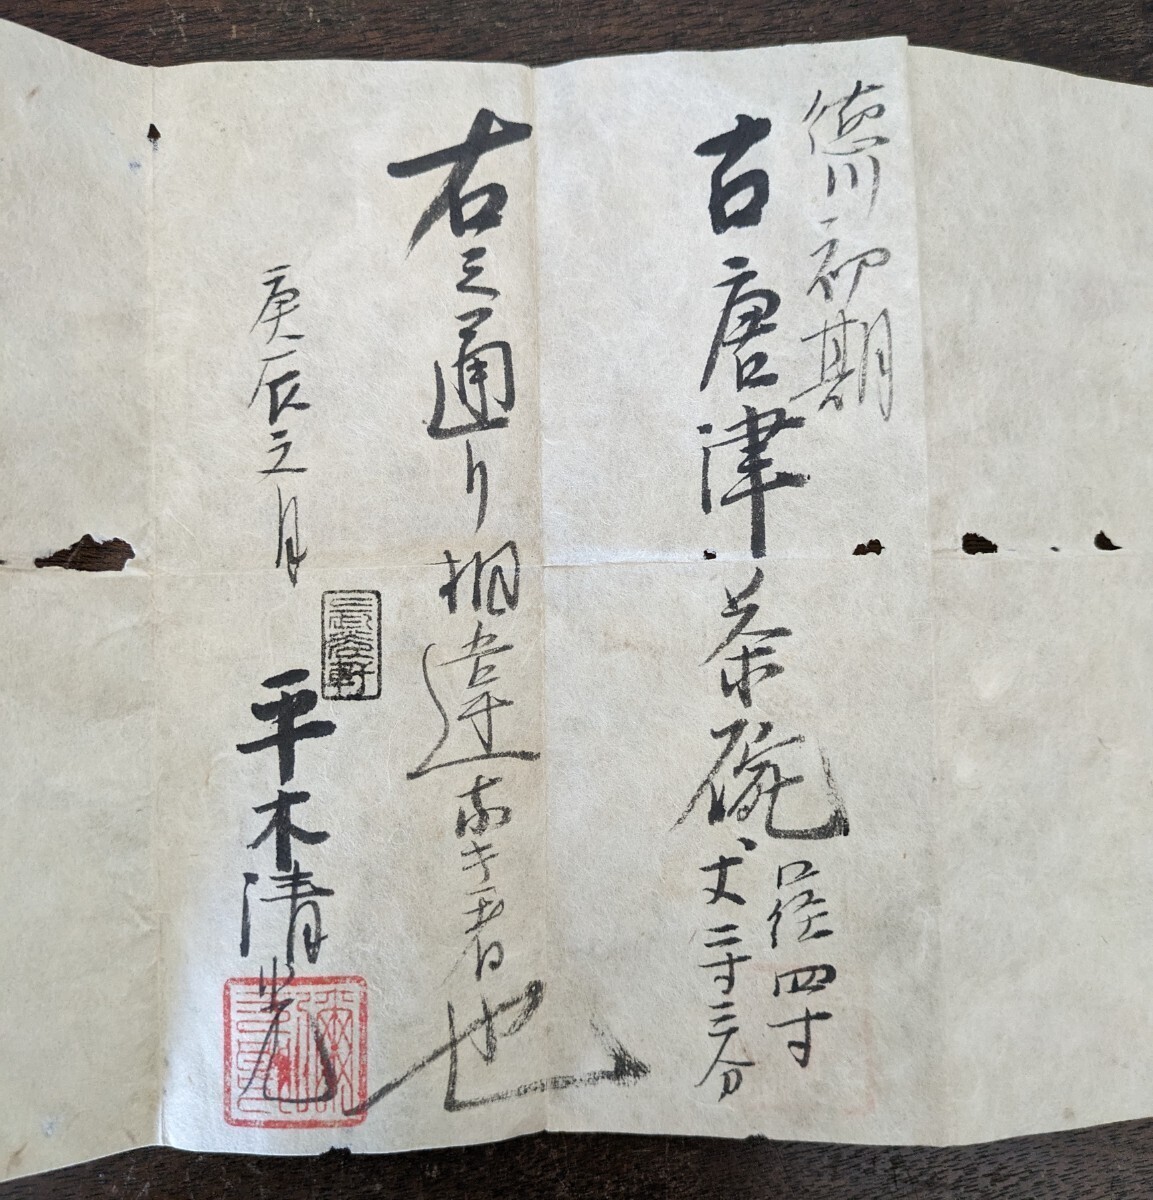 徳川初期
古唐津茶碗
口径四寸
丈二寸三分
右之通り相違無き者也
庚辰之月
平木清光